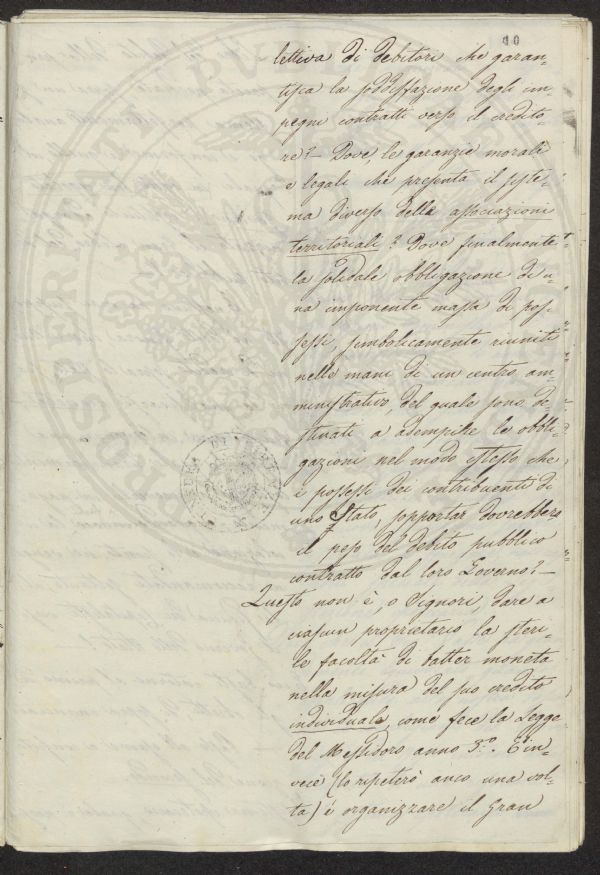 10
lettiva di debitori che garan-
tisca la soddisfazione degli im-
pegni contratti verso il credito-
re? — Dove, le garanzie morali
e legali che presenta il siste-
ma diverso della associazioni
territoriali? Dove finalmente
la solidale obbligazione di u-
na imponente massa di pos-
sessi, simbolicamente riuniti
nelle mani di un centro am-
ministrativo, del quale sono de-
stinati a adempire le obbli-
gazioni nel modo istesso che
i possessi dei contribuenti di
uno Stato, sopportar dovrebbero
il peso del debito pubblico
contratto dal loro Governo? —
Questo non è, o Signori, dare a
ciascun proprietario la steri-
le facoltà di batter moneta
nella misura del suo credito
individuale, come fece la Legge
del Messidoro anno 3.º. È in-
vece (lo ripeterò anco una vol-
ta) è organizzare il Gran